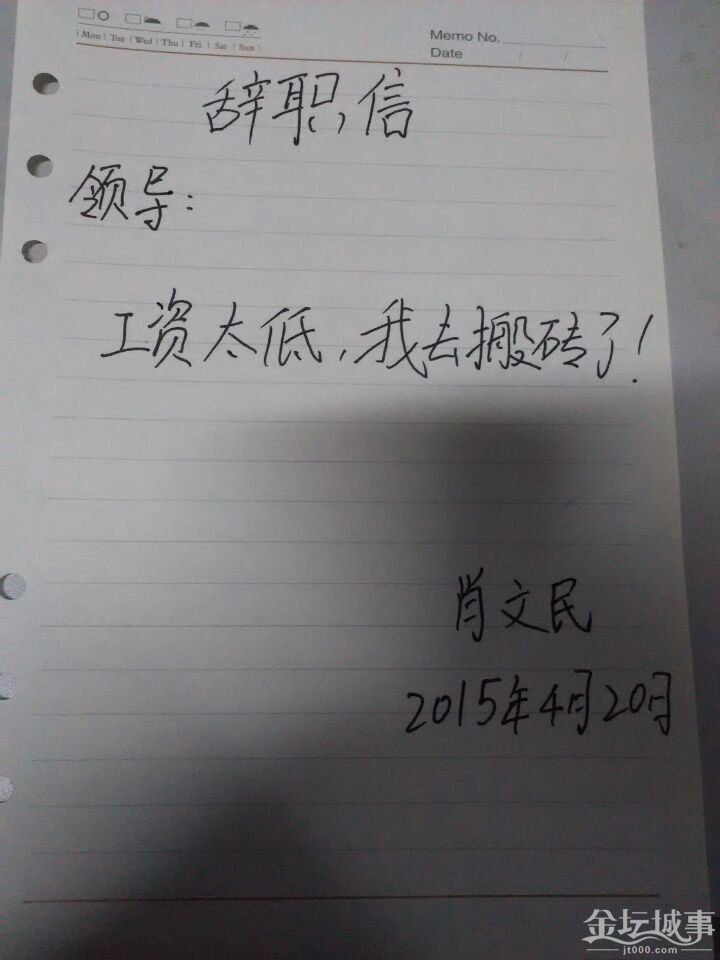 Mon Tue Wed Thu Fri Sat Sun
Memo No.
Date / /
辞职信
领导:
工资太低,我去搬砖了!
肖文民
2015年4月20日
金坛城事
jt000.com